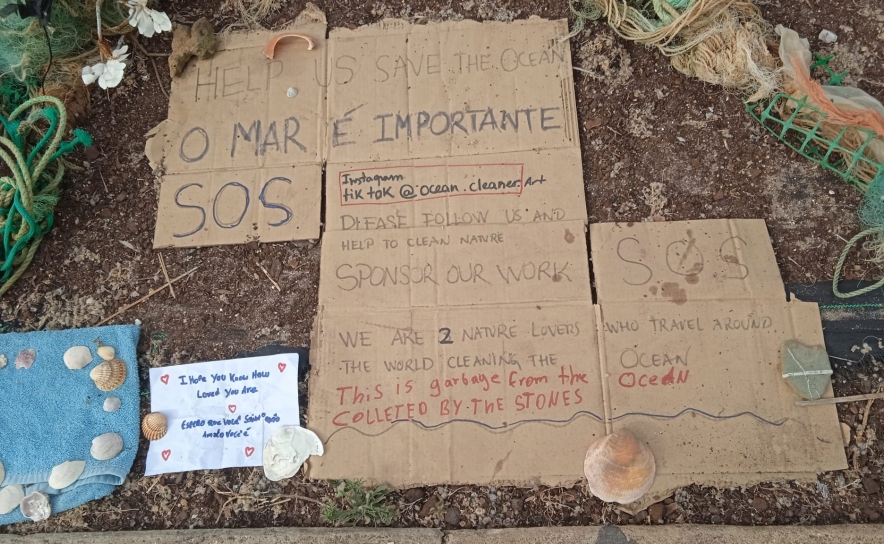 HELP US SAVE THE OCEAN
O MAR É IMPORTANTE
SOS
Instagram
tik tok @:ocean.cleaner.Art
PLEASE FOLLOW US AND
HELP TO CLEAN NATURE
SPONSOR OUR WORK
SOS
WE ARE 2 NATURE LOVERS WHO TRAVEL AROUND
THE WORLD CLEANING THE OCEAN
This is garbage from the OCEAN
COLLETED BY THE STONES
I HOPE YOU KNOW HOW
LOVED YOU ARE
ESPERO QUE VOCÊ SAIBA QUÃO
AMADO VOCÊ É